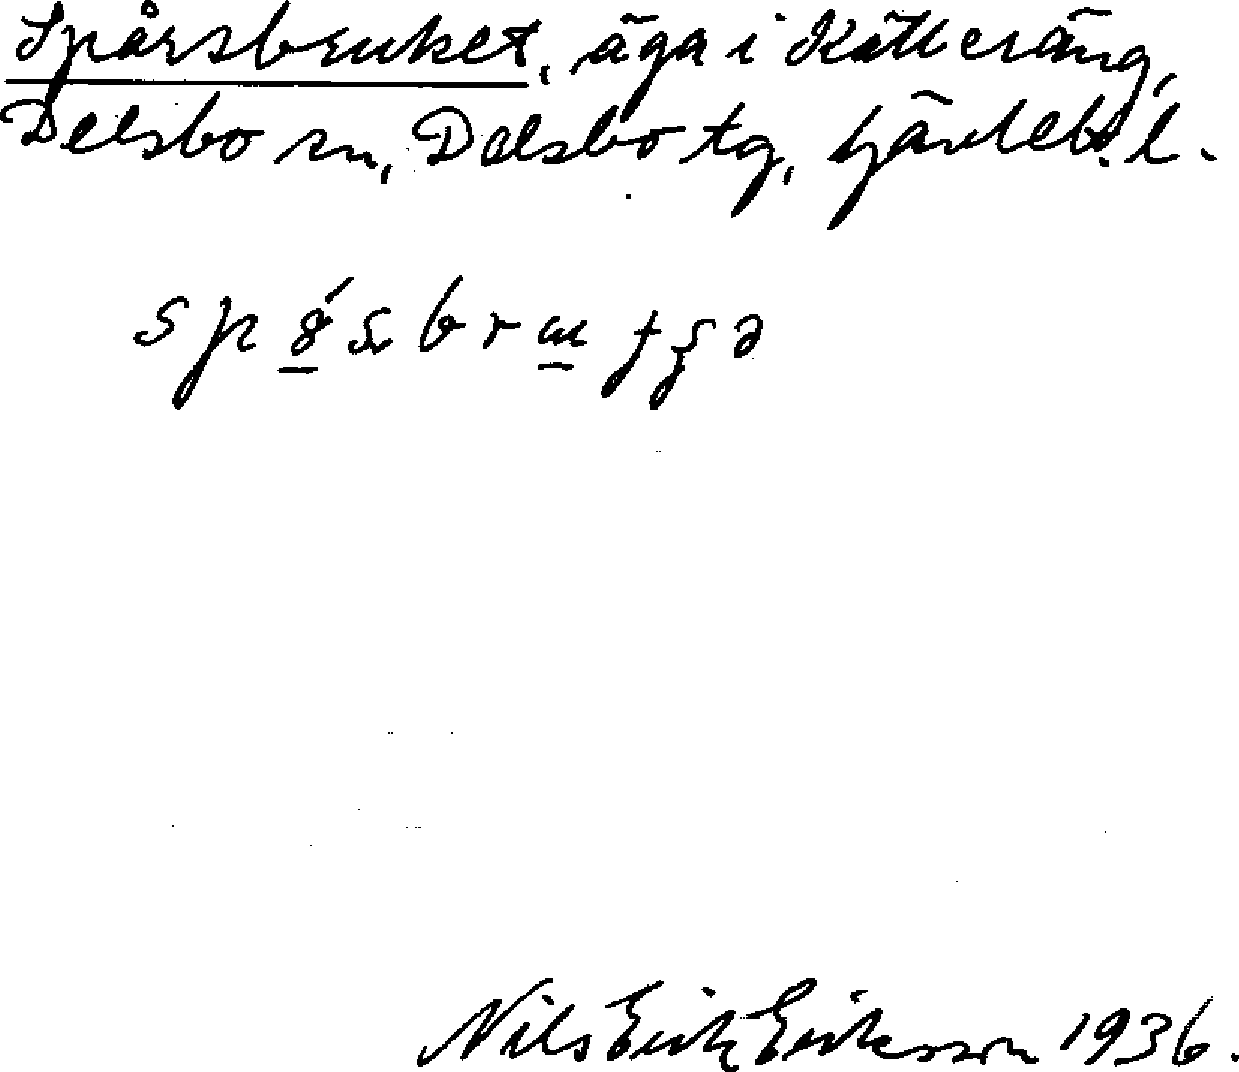 Spårsbruket, äga i Kätteräng,
Delsbo sn, Delsbo tg, Gävleb. l.
Nils Erik Eriksson 1936.